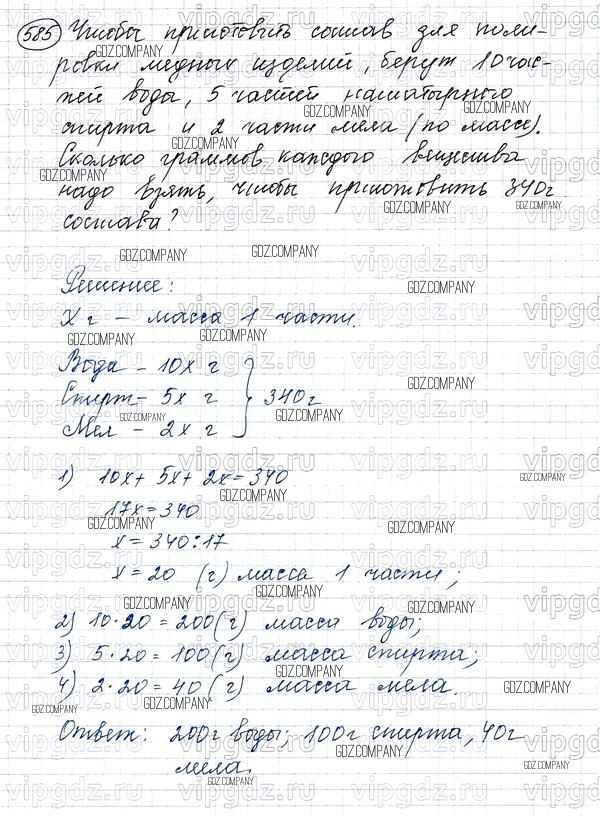 585 Чтобы приготовить состав для поли-
ровки медных изделий, берут 10 час-
тей воды, 5 частей нашатырного
спирта и 2 части мела (по массе).
Сколько граммов каждого вещества
надо взять, чтобы приготовить 340 г
состава?
Решение:
X г – масса 1 части.
Вода – 10x г
Спирт – 5x г } 340 г
Мел – 2x г
1) 10x + 5x + 2x = 340
17x = 340
x = 340 : 17
x = 20 (г) масса 1 части;
2) 10 · 20 = 200 (г) масса воды;
3) 5 · 20 = 100 (г) масса спирта;
4) 2 · 20 = 40 (г) масса мела.
Ответ: 200 г воды; 100 г спирта, 40 г
мела.
vipgdz.ru
GDZ.COMPANY